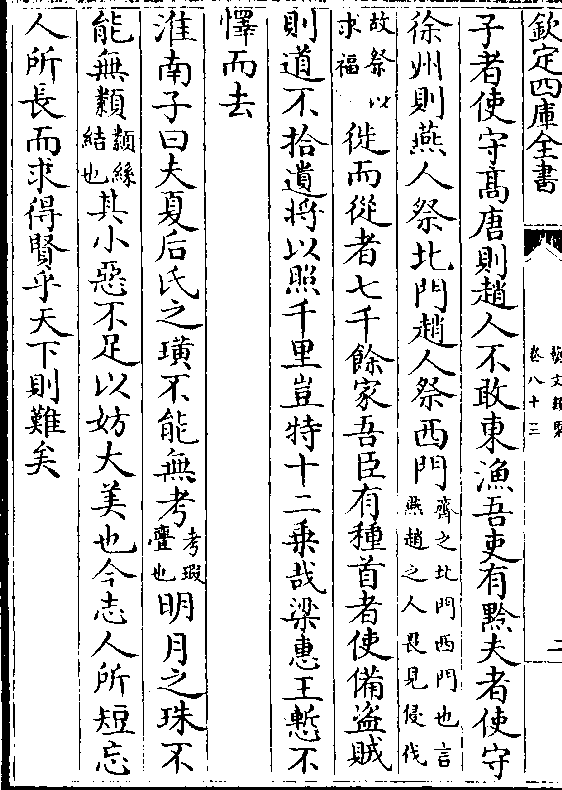 欽定四庫全書
藝文類聚
卷八十三
二
子者使守髙唐則趙人不敢東漁吾吏有黔夫者使守
徐州則燕人祭北門趙人祭西門齊之北門西門也言燕趙之人畏見侵伐
故祭以求福徙而從者七千餘家吾臣有種首者使備盜賊
則道不拾遺將以照千里豈特十二乗哉梁惠王慙不
懌而去
淮南子曰夫夏后氏之璜不能無考考瑕舋也明月之珠不
能無纇纇絲結也其小惡不足以妨大美也今志人所短忘
人所長而求得賢乎天下則難矣